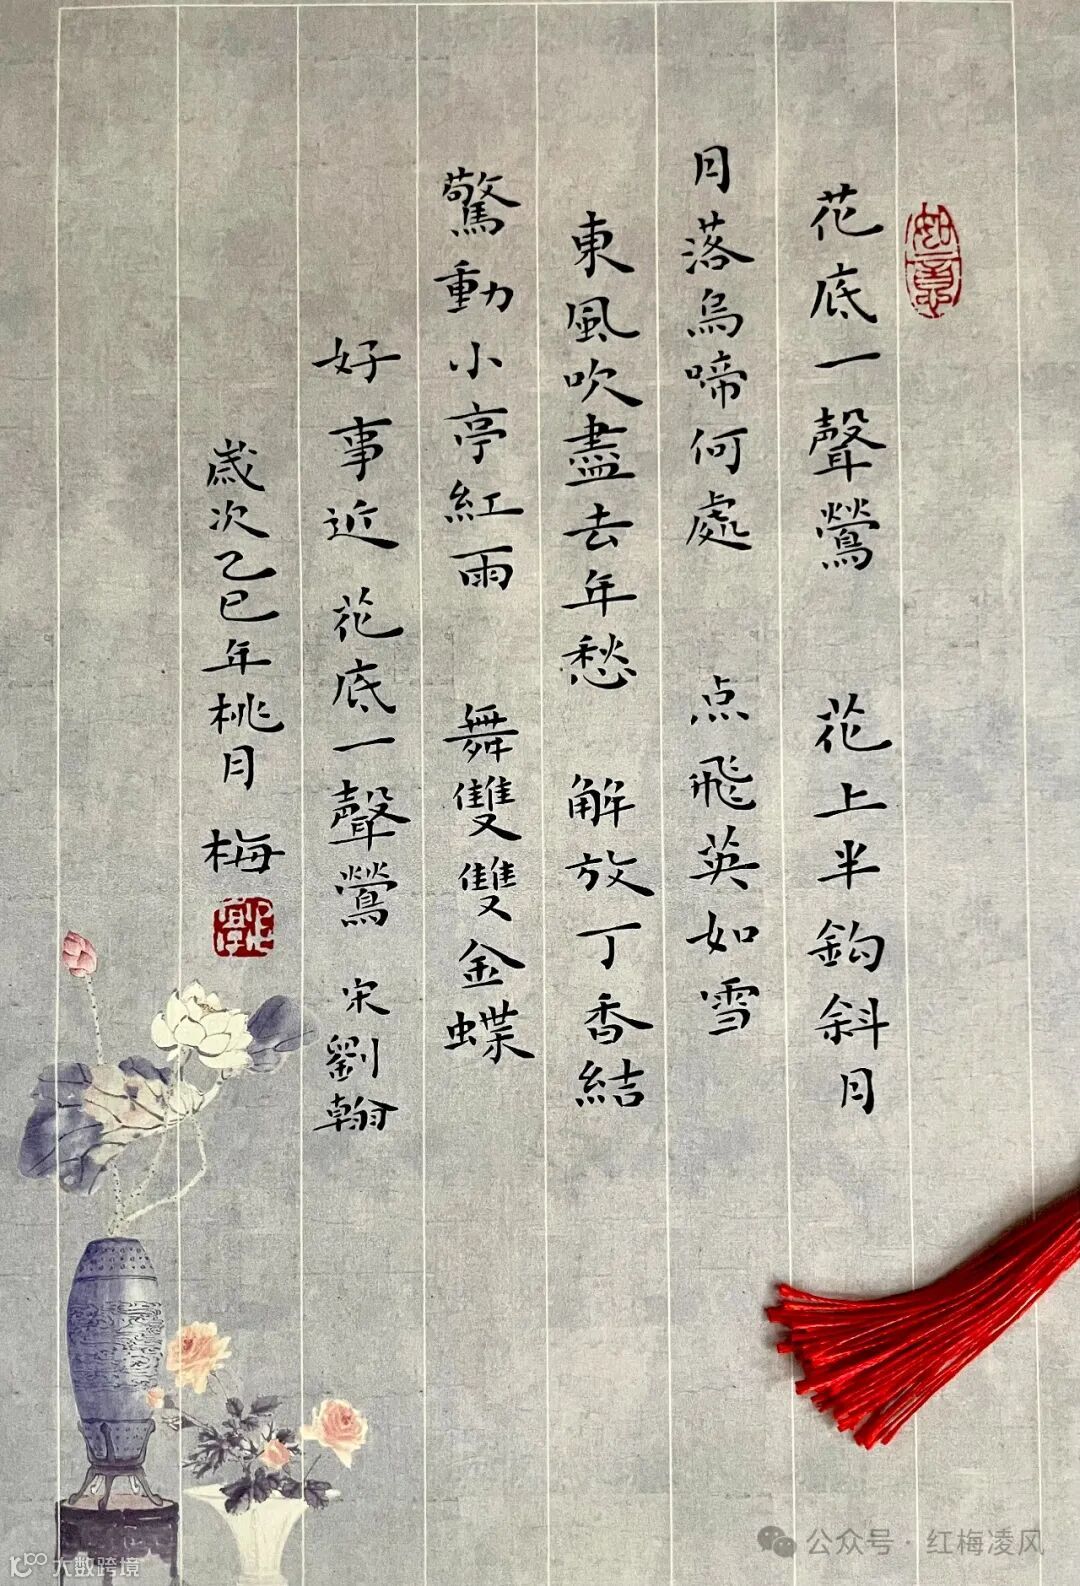 如意
花底一聲鶯 花上半鈎斜月
月落烏啼何處 点飛英如雪
東風吹盡去年愁 解放丁香結
驚動小亭紅雨 舞雙雙金蝶
好事近 花底一聲鶯 宋 劉翰
歲次乙巳年桃月 梅
公众号·红梅凌风
大数跨境